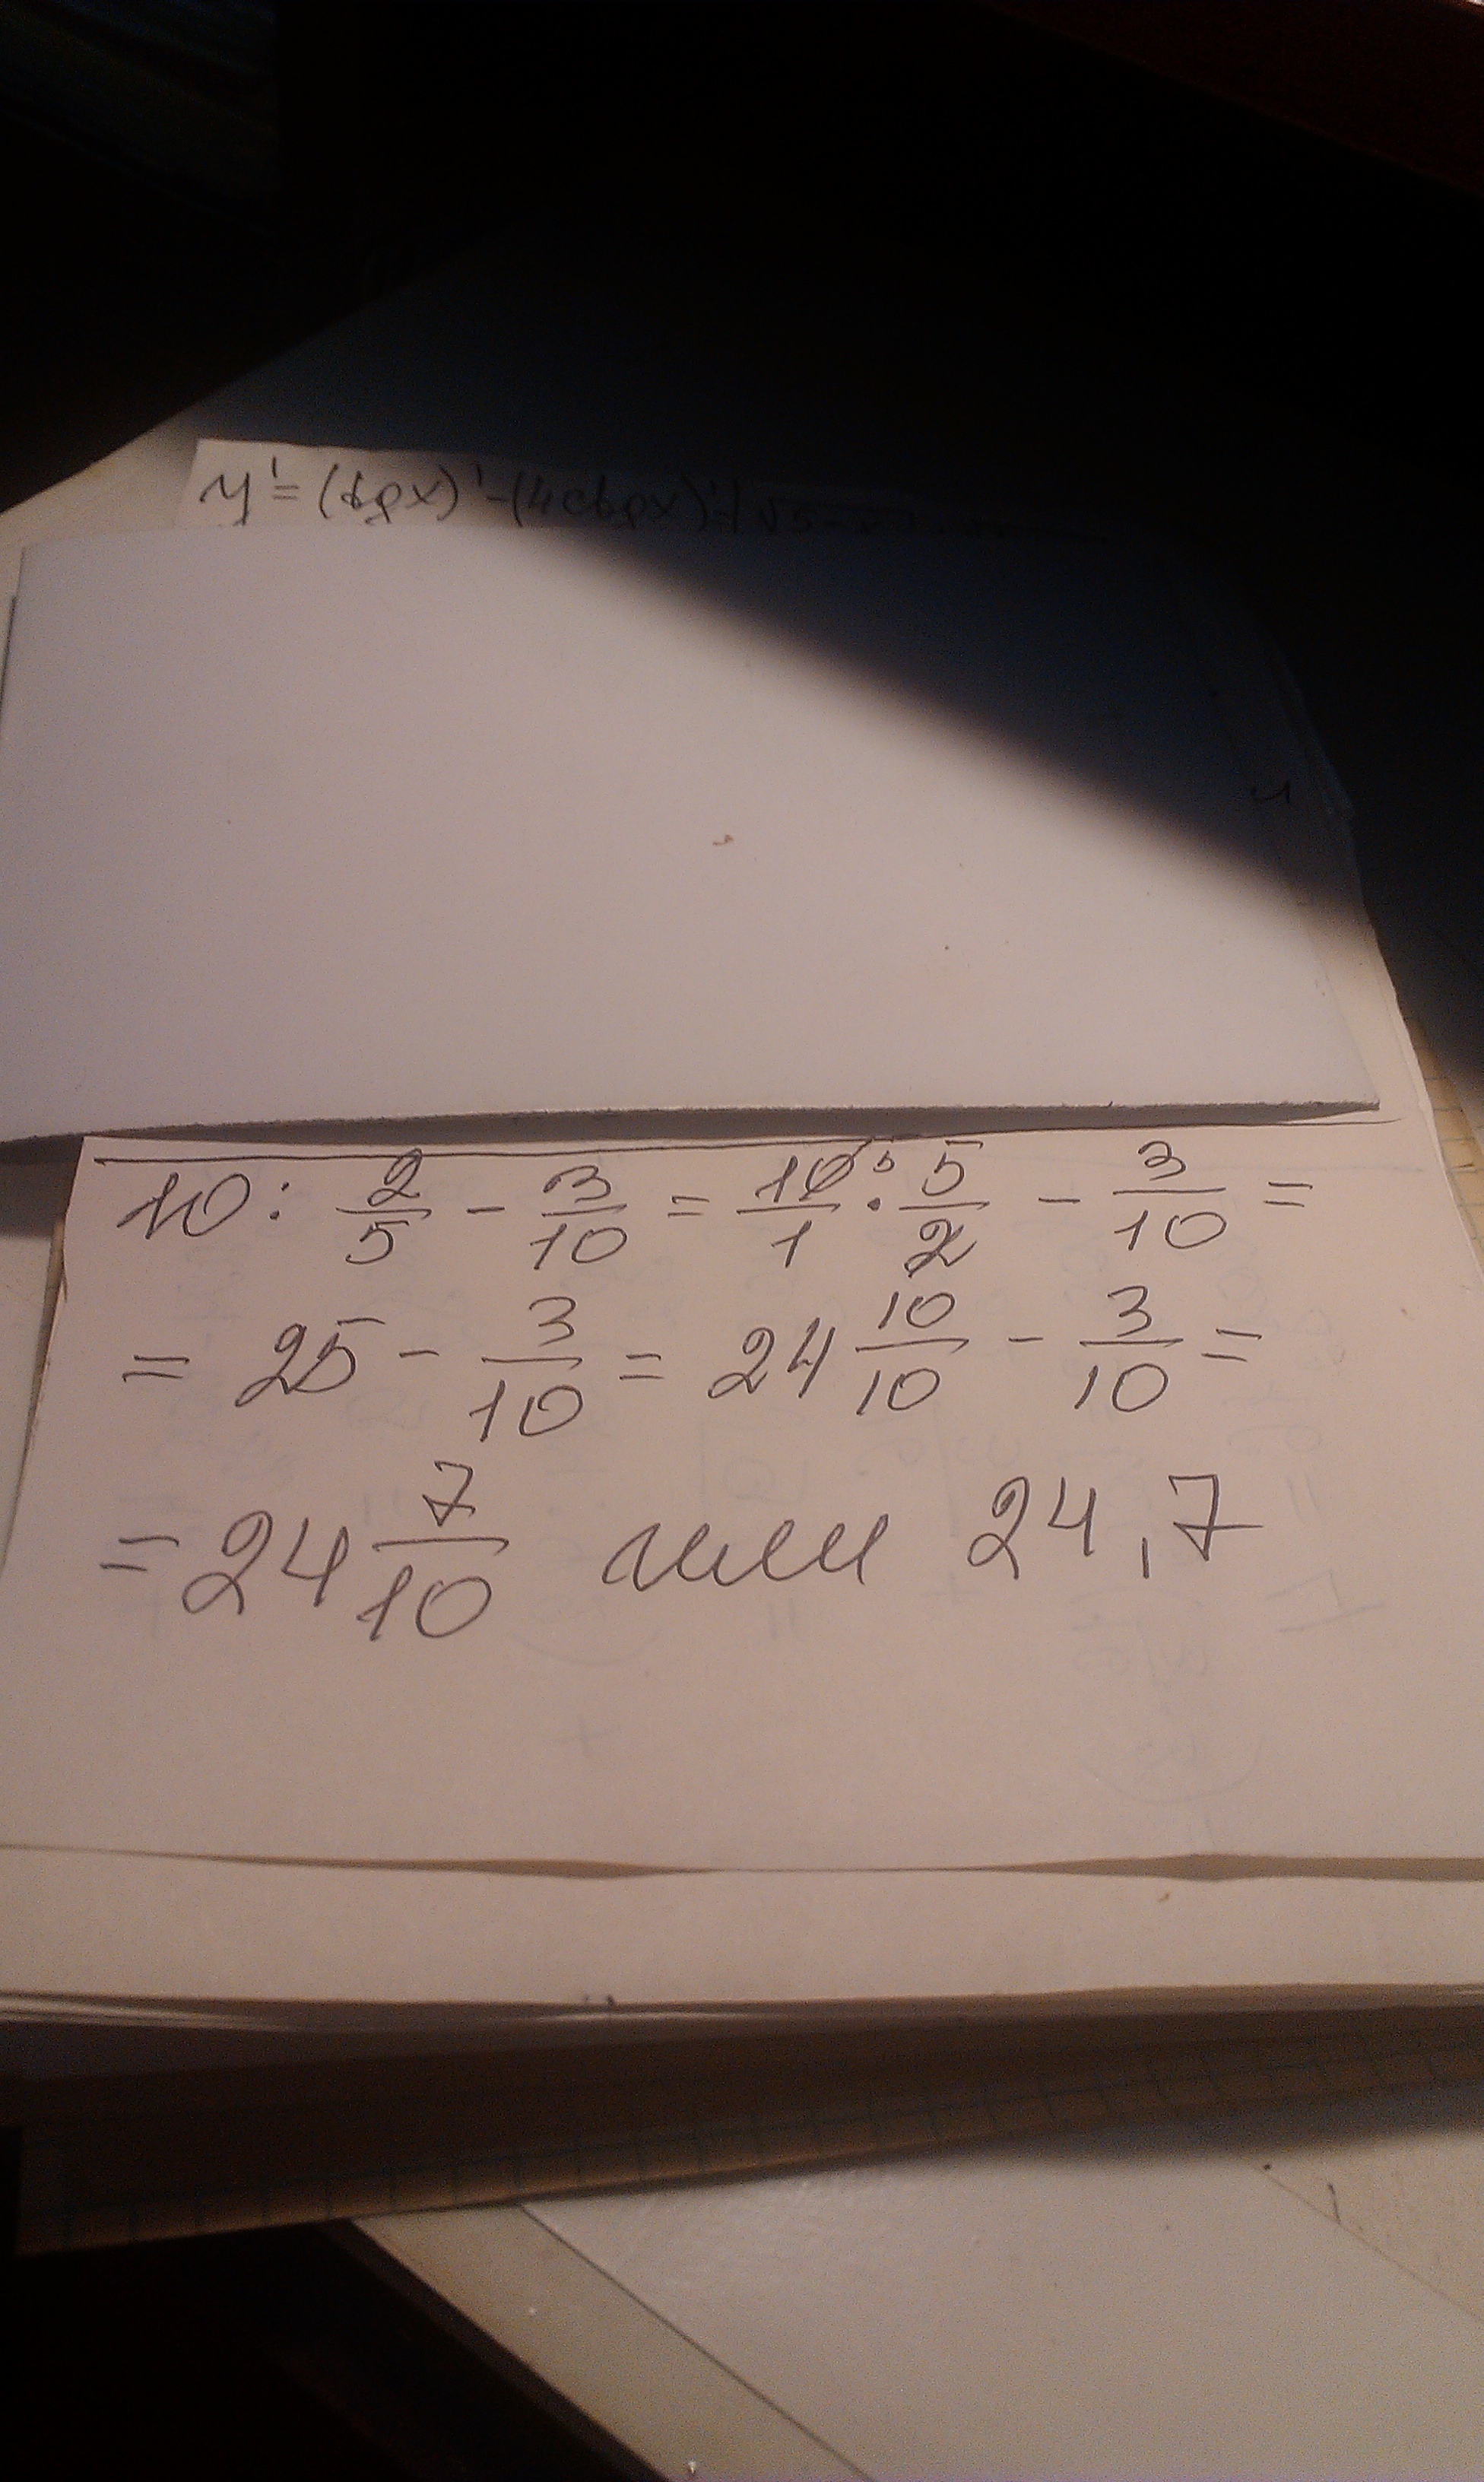 y' = (tgx)' - (4ctgx)'
10 : 2/5 - 3/10 = 10/1 5 · 5/2 - 3/10 =
= 25 - 3/10 = 24 10/10 - 3/10 =
= 24 7/10 или 24,7